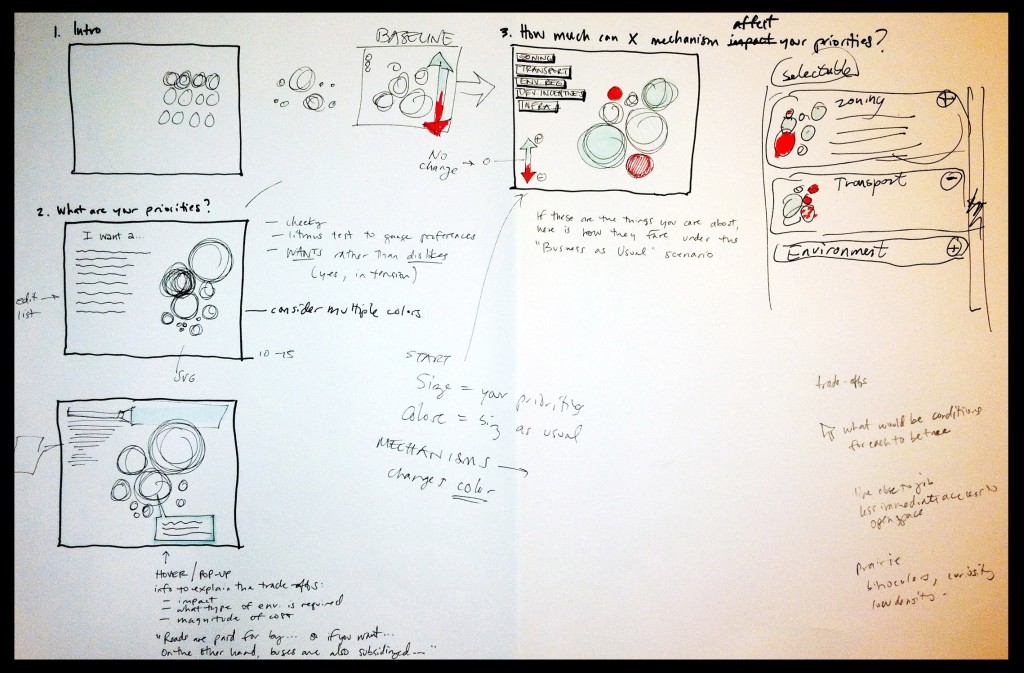 1. Intro
BASELINE
No
change → 0
3. How much can X mechanism impact your priorities?
affect
ZONING
TRANSPORT
ENV. REG
DEV INCENTIVES
INFRA
+
-
selectable
zoning
+
Transport
-
Environment
+
If these are the things you care about,
here is how they fare under the
"Business as Usual" scenario
2. What are your priorities?
I want a...
edit
list
SVG
10-15
- cheeky
- litmus test to gauge preferences
- WANTS rather than dislikes
(yes, in tension)
consider multiple colors
START
Size = your priorities
Color = as usual
MECHANISMS →
changes color
HOVER/POP-UP
info to explain the trade-offs:
- impact
- what type of env. is required
- magnitude of cost
"Roads are paid for by... if you want...
On the other hand, buses are also subsidized—"
trade-offs
what would be conditions
for each to be true
live close to job
less immediate access to
open space
prairie
binoculars, curiosity
low density